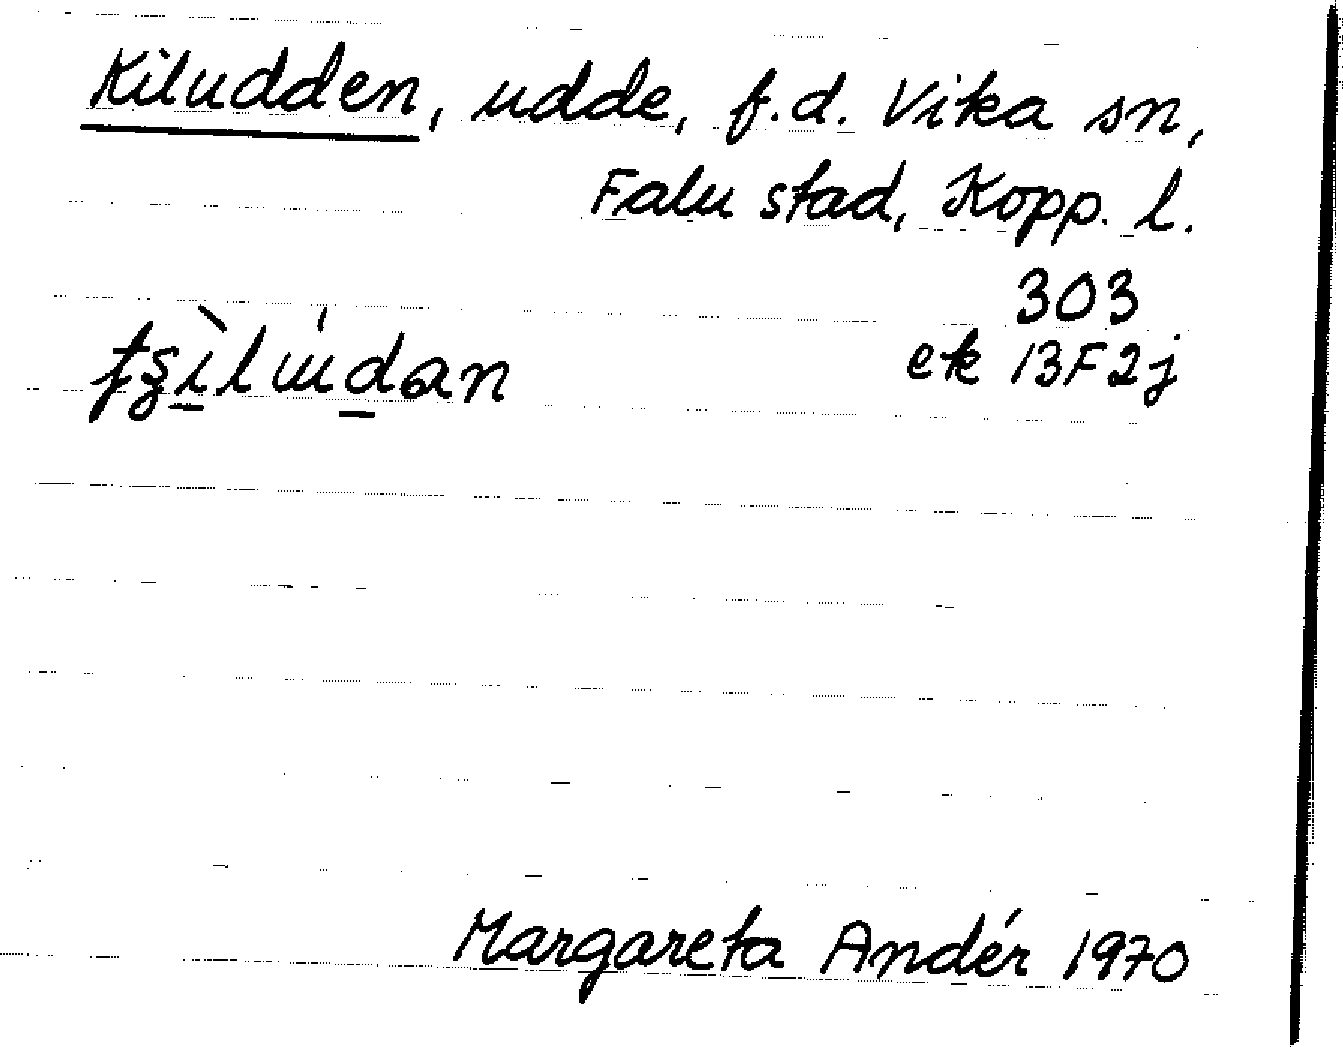 Kiludden, udde, f.d. Vika sn,
Falu stad, Kopp. l.
303
ek 13F2j
Margareta Andér 1970